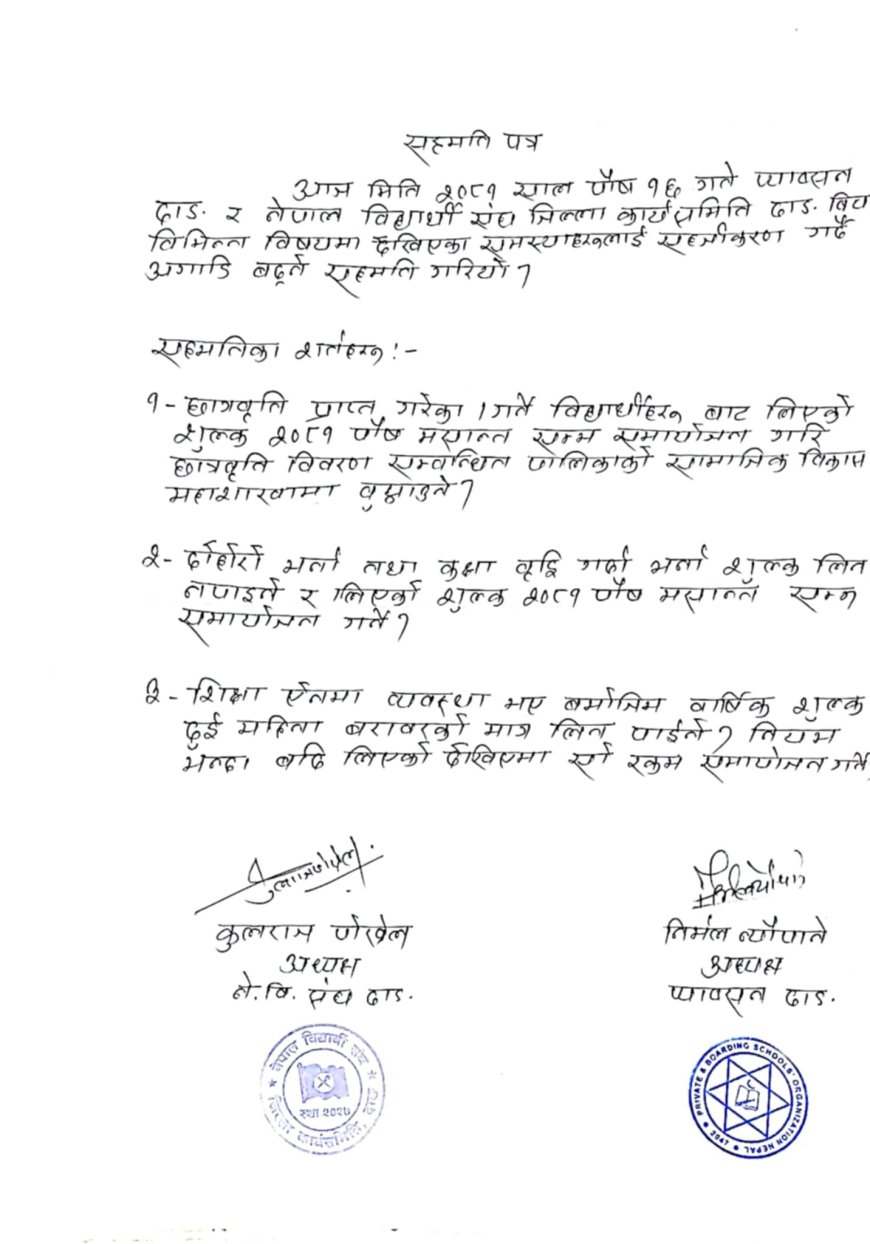 सहमति पत्र
आज मिति २०८१ साल पौष १६ गते प्याब्सन
दाङ. र नेपाल विद्यार्थी संघ जिल्ला कार्य समिति दाङ. बिच
विभिन्न विषयमा देखिएका समस्याहरुलाई सहजीकरण गर्दै
अगाडि बढ्ने सहमति गरियो ?
सहमतिका शर्तहरु :-
१- छात्रवृति प्राप्त गरेका /गर्ने विद्यार्थीहरु बाट लिएको
शुल्क २०८१ पौष मसान्त सम्म समायोजन गरि
छात्रवृति विवरण सम्वन्धित पालिकाको सामाजिक विकास
महाशाखामा वुझाउने ?
२- दोहोरो भर्ना तथा कक्षा वृद्धि गर्दा भर्ना शुल्क लिन
नपाइने र लिएको शुल्क २०८१ पौष मसान्त सम्म
समायोजन गर्ने ?
३- शिक्षा ऐनमा व्यवस्था भए बमोजिम वार्षिक शुल्क
दुई महिना बरावरको मात्र लिन पाईने ? नियम
भन्दा बढि लिएको देखिएमा सो रकम समायोजन गर्ने
कुलराज पोखेल
अध्यक्ष
ने. वि. संघ दाङ.
निर्मल न्यौपाने
अध्यक्ष
प्याब्सन दाङ.
नेपाल विद्यार्थी संघ
स्था २०२७
जिल्ला कार्यसमिति, दाङ
PRIVATE & BOARDING SCHOOLS' ORGANIZATION NEPAL
2047